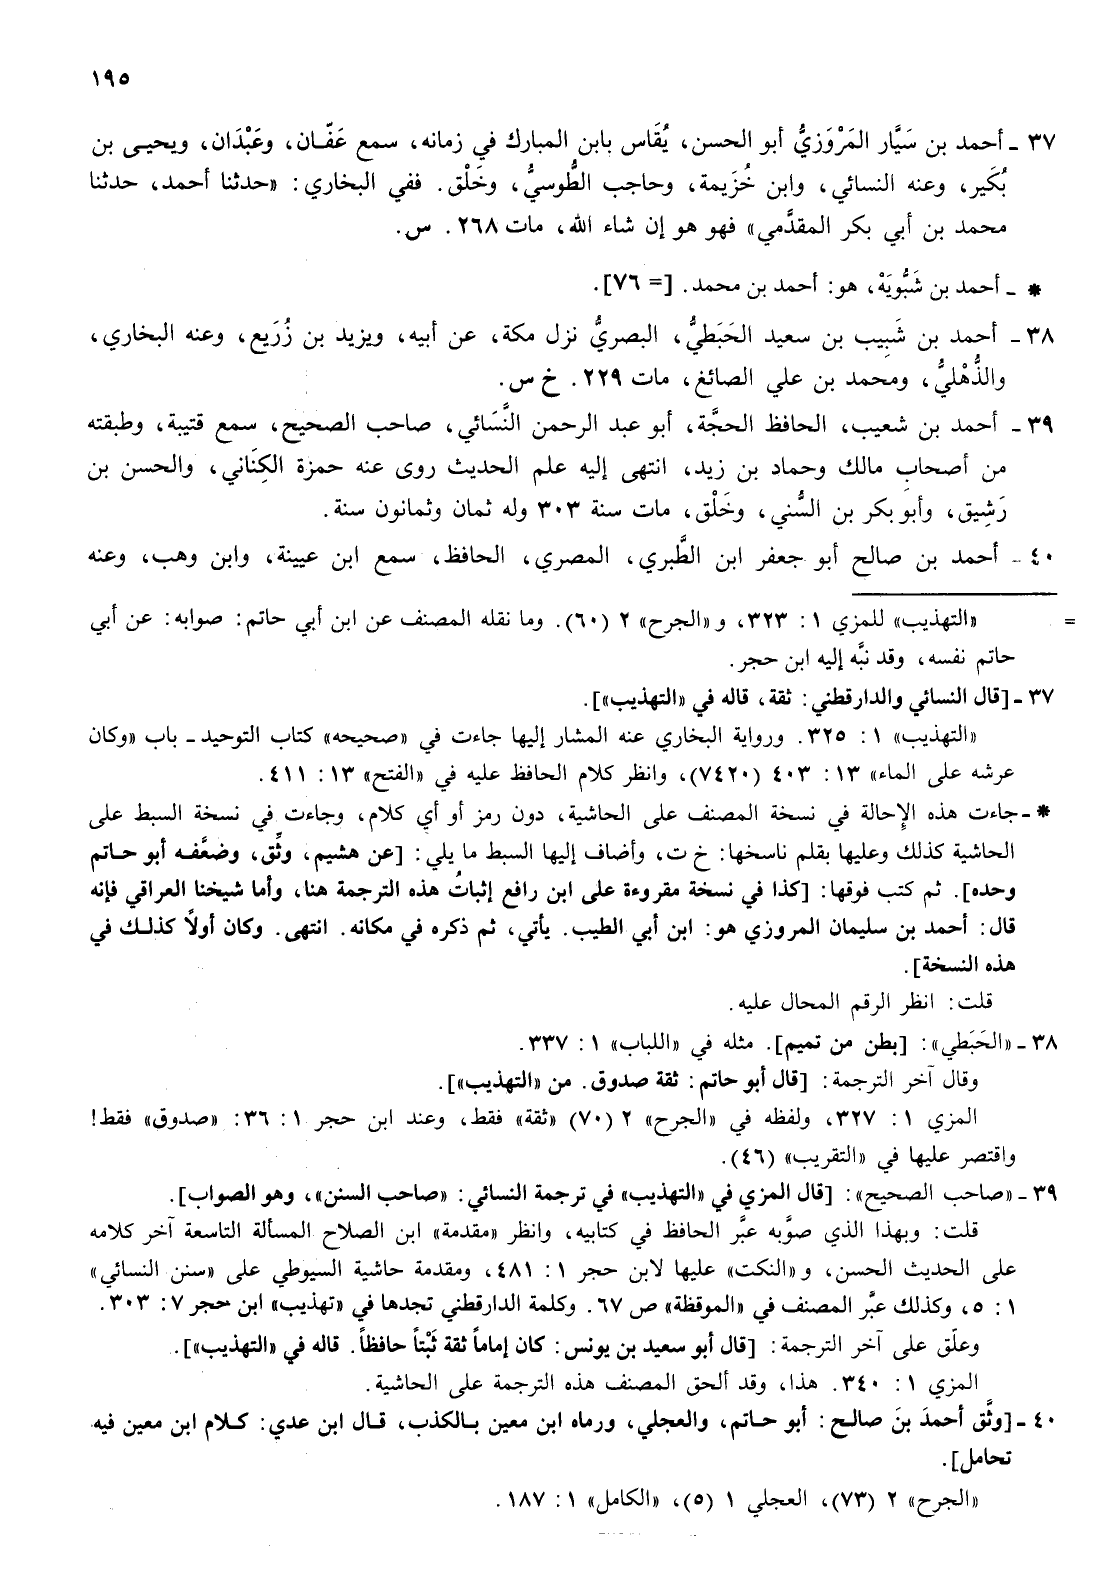 ١٩٥
٣٧ ـ أحمد بن سَيَّار المَرْوَزيُّ أبو الحسن، يُقَاس بابن المبارك في زمانه، سمع عَفّان، وعَبْدَان، ويحيى بن
بُكَير، وعنه النسائي، وابن خُزَيمة، وحاجب الطُّوسيُّ، وخَلْق. ففي البخاري: «حدثنا أحمد، حدثنا
محمد بن أبي بكر المقدَّمي» فهو هو إن شاء الله، مات ٢٦٨. س.
* ـ أحمد بن شَبُّويَهْ، هو: أحمد بن محمد. [= ٧٦].
٣٨ ـ أحمد بن شَبِيب بن سعيد الحَبَطيُّ، البصريُّ نزل مكة، عن أبيه، ويزيد بن زُرَيع، وعنه البخاري،
والذُّهْليُّ، ومحمد بن علي الصائغ، مات ٢٢٩. خ س.
٣٩ ـ أحمد بن شعيب، الحافظ الحجَّة، أبو عبد الرحمن النَّسَائي، صاحب الصحيح، سمع قتيبة، وطبقته
من أصحاب مالك وحماد بن زيد، انتهى إليه علم الحديث روى عنه حمزة الكِنَاني، والحسن بن
رَشِيق، وأبو بكر بن السُّني، وخَلْق، مات سنة ٣٠٣ وله ثمان وثمانون سنة.
٤٠ ـ أحمد بن صالح أبو جعفر ابن الطَّبري، المصري، الحافظ، سمع ابن عيينة، وابن وهب، وعنه
= «التهذيب» للمزي ١: ٣٢٣، و«الجرح» ٢ (٦٠). وما نقله المصنف عن ابن أبي حاتم: صوابه: عن أبي
حاتم نفسه، وقد نبَّه إليه ابن حجر.
٣٧ ـ [قال النسائي والدارقطني: ثقة، قاله في «التهذيب»].
«التهذيب» ١: ٣٢٥. ورواية البخاري عنه المشار إليها جاءت في «صحيحه» كتاب التوحيد ـ باب «وكان
عرشه على الماء» ١٣: ٤٠٣ (٧٤٢٠)، وانظر كلام الحافظ عليه في «الفتح» ١٣: ٤١١.
* ـ جاءت هذه الإحالة في نسخة المصنف على الحاشية، دون رمز أو أي كلام، وجاءت في نسخة السبط على
الحاشية كذلك وعليها بقلم ناسخها: خ ت، وأضاف إليها السبط ما يلي: [عن هشيم، وثِّق، وضعَّفه أبو حاتم
وحده]. ثم كتب فوقها: [كذا في نسخة مقروءة على ابن رافع إثباتُ هذه الترجمة هنا، وأما شيخنا العراقي فإنه
قال: أحمد بن سليمان المروزي هو: ابن أبي الطيب. يأتي، ثم ذكره في مكانه. انتهى. وكان أولاً كذلك في
هذه النسخة].
قلت: انظر الرقم المحال عليه.
٣٨ ـ «الحَبَطي»: [بطن من تميم]. مثله في «اللباب» ١: ٣٣٧.
وقال آخر الترجمة: [قال أبو حاتم: ثقة صدوق. من «التهذيب»].
المزي ١: ٣٢٧، ولفظه في «الجرح» ٢ (٧٠) «ثقة» فقط، وعند ابن حجر ١: ٣٦: «صدوق» فقط!
واقتصر عليها في «التقريب» (٤٦).
٣٩ ـ «صاحب الصحيح»: [قال المزي في «التهذيب» في ترجمة النسائي: «صاحب السنن»، وهو الصواب].
قلت: وبهذا الذي صوَّبه عبَّر الحافظ في كتابيه، وانظر «مقدمة» ابن الصلاح المسألة التاسعة آخر كلامه
على الحديث الحسن، و«النكت» عليها لابن حجر ١: ٤٨١، ومقدمة حاشية السيوطي على «سنن النسائي»
١: ٥، وكذلك عبَّر المصنف في «الموقظة» ص ٦٧. وكلمة الدارقطني تجدها في «تهذيب» ابن حجر ٧: ٣٠٣.
وعلَّق على آخر الترجمة: [قال أبو سعيد بن يونس: كان إماماً ثقة ثَبْتاً حافظاً. قاله في «التهذيب»].
المزي ١: ٣٤٠. هذا، وقد ألحق المصنف هذه الترجمة على الحاشية.
٤٠ ـ [وثَّق أحمدَ بنَ صالح: أبو حاتم، والعجلي، ورماه ابن معين بالكذب، قال ابن عدي: كلام ابن معين فيه
تحامل].
«الجرح» ٢ (٧٣)، العجلي ١ (٥)، «الكامل» ١: ١٨٧.